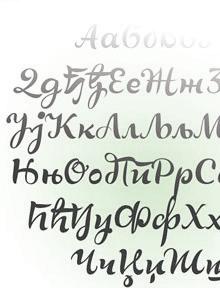 АаБбВ
ДдЂђЕеЖжЗ
ЈјКкЛлЉљМ
ЊњОоПпРрС
ЋћУуФфХх
ЧчЏџШш